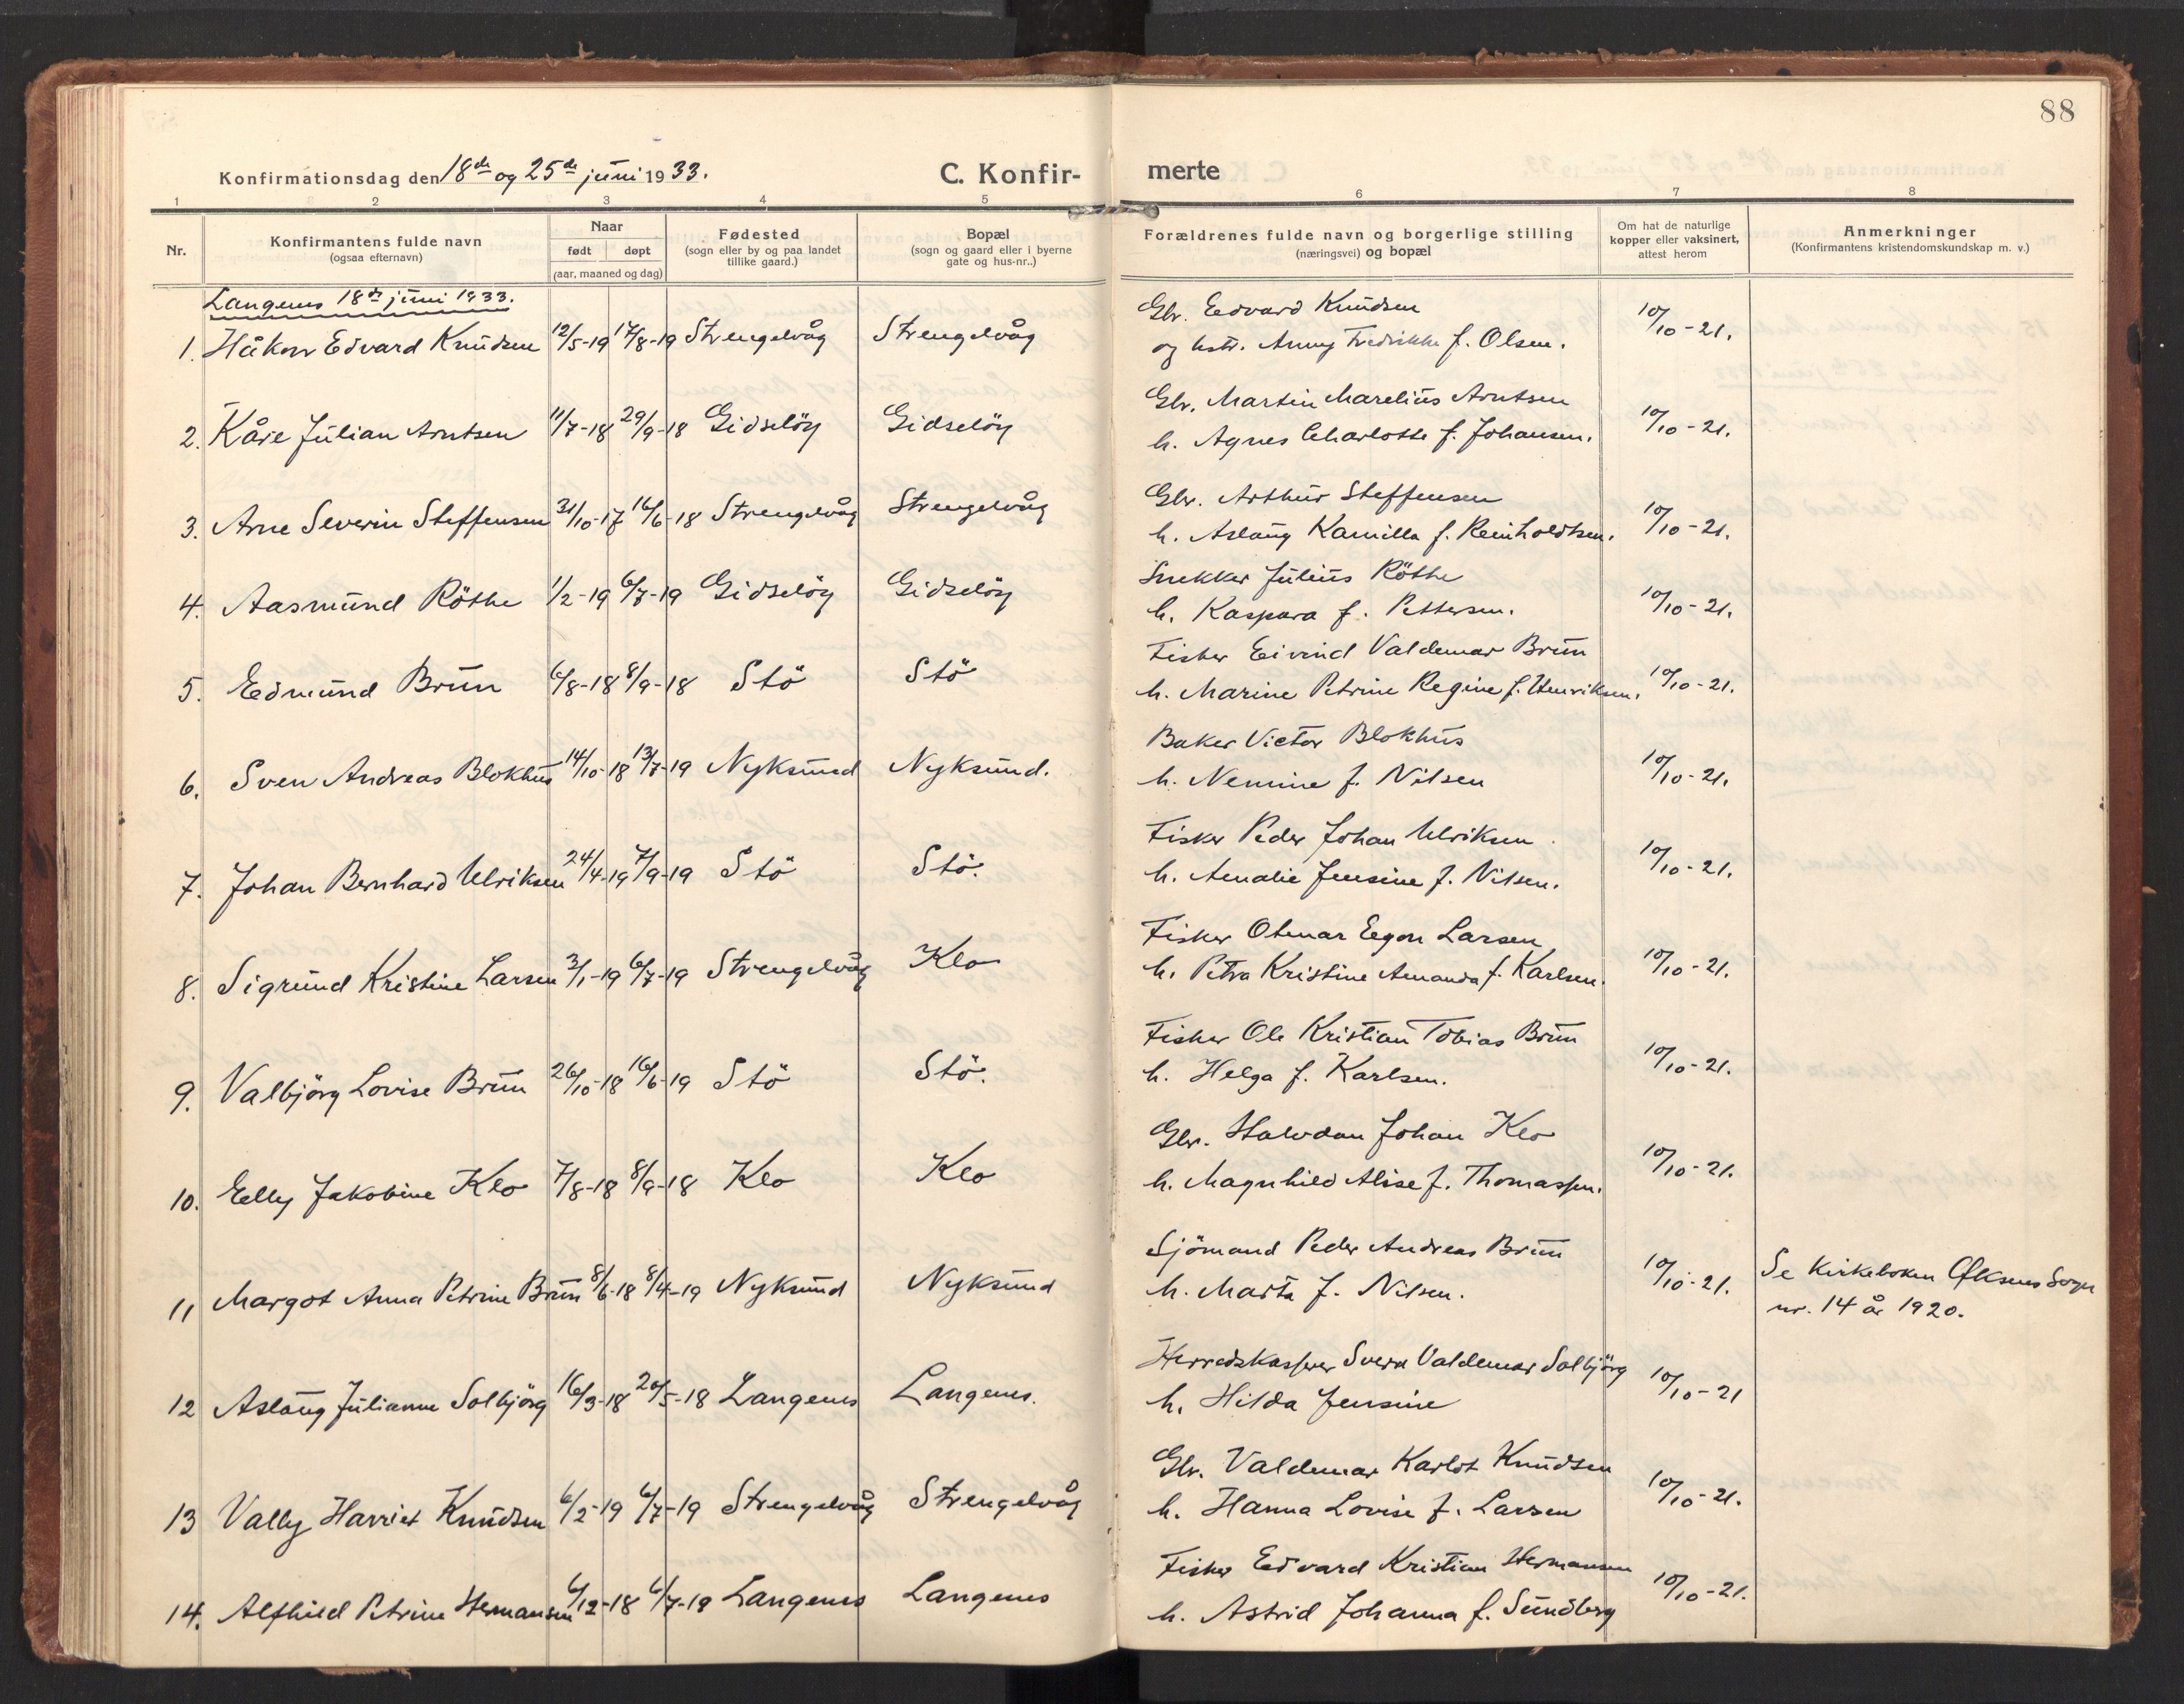 88
Konfirmationsdag den 18de og 25de juni 1933.
C. Konfir-
merte
1 2 3 4 5 6 7 8
Nr.
Konfirmantens fulde navn
(ogsaa efternavn)
Naar
født døpt
(aar, maaned og dag)
Fødested
(sogn eller by og paa landet
tillike gaard.)
Bopæl
(sogn og gaard eller i byerne
gate og hus-nr..)
Forældrenes fulde navn og borgerlige stilling
(næringsvei) og bopæl
Om hat de naturlige
kopper eller vaksinert,
attest herom
Anmerkninger
(Konfirmantens kristendomskundskap m. v.)
Langenes 18de juni 1933.
1. Håkon Edvard Knudsen 12/5-19 17/8-19 Strengelvåg Strengelvåg Gbr. Edvard Knudsen 10/10-21.
og hstr. Anny Fredrikke f. Olsen.
2. Kåre Julian Arntsen 11/7-18 29/9-18 Gidselöy Gidselöy Gbr. Martin Marelius Arntsen 10/10-21.
h. Agnes Charlotte f. Johansen.
3. Arne Severin Steffensen 31/10-17 16/6-18 Strengelvåg Strengelvåg Gbr. Arthur Steffensen 10/10-21.
h. Aslaug Kamilla f. Reinholdtsen.
4. Aasmund Röthe 1/2-19 6/7-19 Gidselöy Gidselöy Snekker Julius Röthe 10/10-21.
h. Kaspara f. Pettersen.
5. Edmund Brun 6/8-18 8/9-18 Stö Stö Fisker Eivind Valdemar Brun 10/10-21.
h. Marine Petrine Regine f. Henriksen.
6. Sven Andreas Blokhus 14/10-18 13/7-19 Nyksund Nyksund. Baker Victor Blokhus 10/10-21.
h. Nemine f. Nilsen
7. Johan Bernhard Ulriksen 24/4-19 7/9-19 Stö Stö. Fisker Peder Johan Ulriksen 10/10-21.
h. Amalie Jensine f. Nilsen.
8. Sigrund Kristine Larsen 3/1-19 6/7-19 Strengelvåg Klo Fisker Otmar Egon Larsen 10/10-21.
h. Petra Kristine Amanda f. Karlsen.
9. Valbjörg Lovise Brun 26/10-18 16/6-19 Stö Stö. Fisker Ole Kristian Tobias Brun 10/10-21.
h. Helga f. Karlsen.
10. Elly Jakobine Klo 7/8-18 8/9-18 Klo Klo Gbr. Halvdan Johan Klo 10/10-21.
h. Magnhild Alise f. Thomassen.
11 Margot Anna Petrine Brun 8/6-18 8/4-19 Nyksund Nyksund Sjömand Peder Andreas Brun 10/10-21. Se Kirkeboken Öksnes Sogn
h. Marta f. Nilsen. nr. 14 år 1920.
12 Aslaug Julianne Solbjörg 16/3-18 20/5-18 Langenes Langenes. Herredskasserer Sverre Valdemar Solbjörg 10/10-21
h. Hilda Jensine
13 Vally Harriet Knudsen 6/2-19 6/7-19 Strengelvåg Strengelvåg Gbr. Valdemar Karlot Knudsen 10/10-21.
h. Hanna Lovise f. Larsen
14. Alfhild Petrine Hermansen 6/12-18 6/7-19 Langenes Langenes Fisker Edvard Kristian Hermansen 10/10-21.
h. Astrid Johanna f. Sundberg